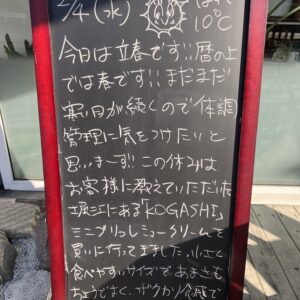 2/4(水) はれ
10℃
今日は立春です!!暦の上
では春です!!まだまだ
寒い日が続くので体調
管理に気をつけたいと
思いまーす!!この休みは
お客様に教えていただいた
堀江にある「KOGASHI」
ミニブリュレシュークリームを
買いに行ってきました。小さく
食べやすいサイズであまさも
ちょうどよく、ザクカリ食感で